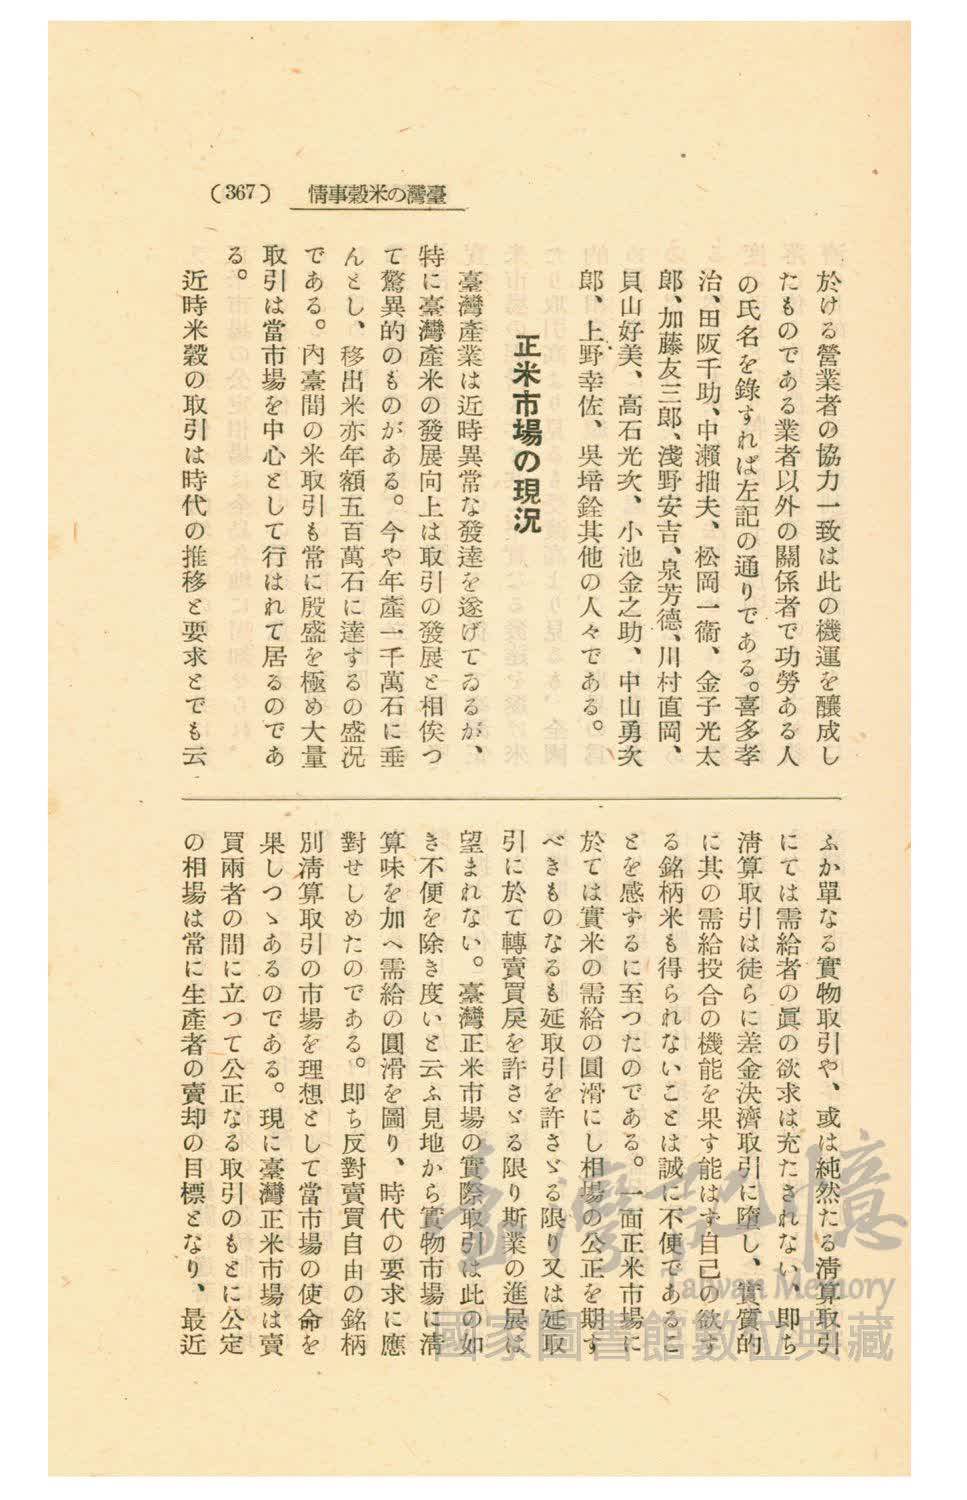 (367) 情事穀米の灣臺
於ける營業者の協力一致は此の機運を釀成し
たものである業者以外の關係者で功勞ある人
の氏名を錄すれば左記の通りである。喜多孝
治、田阪千助、中瀨拙夫、松岡一衞、金子光太
郎、加藤友三郎、淺野安吉、泉芳德、川村直岡、
貝山好美、高石光次、小池金之助、中山勇次
郎、上野幸佐、吳培銓其他の人々である。
正米市場の現況
臺灣產業は近時異常な發達を遂げてゐるが、
特に臺灣產米の發展向上は取引の發展と相俟つ
て驚異的のものがある。今や年產一千萬石に垂
んとし、移出米亦年額五百萬石に達するの盛況
である。內臺間の米取引も常に殷盛を極め大量
取引は當市場を中心として行はれて居るのであ
る。
近時米穀の取引は時代の推移と要求とでも云
ふか單なる實物取引や、或は純然たる淸算取引
にては需給者の眞の欲求は充たされない、卽ち
淸算取引は徒らに差金決濟取引に墮し、實質的
に其の需給投合の機能を果す能はず自己の欲す
る銘柄米も得られないことは誠に不便であるこ
とを感ずるに至つたのである。一面正米市場に
於ては實米の需給の圓滑にし相場の公正を期す
べきものなるも延取引を許さゞる限り又は延取
引に於て轉賣買戾を許さゞる限り斯業の進展は
望まれない。臺灣正米市場の實際取引は此の如
き不便を除き度いと云ふ見地から實物市場に淸
算味を加へ需給の圓滑を圖り、時代の要求に應
對せしめたのである。卽ち反對賣買自由の銘柄
別淸算取引の市場を理想として當市場の使命を
果しつゝあるのである。現に臺灣正米市場は賣
買兩者の間に立つて公正なる取引のもとに公定
の相場は常に生產者の賣却の目標となり、最近
臺灣記憶
Taiwan Memory
國家圖書館數位典藏